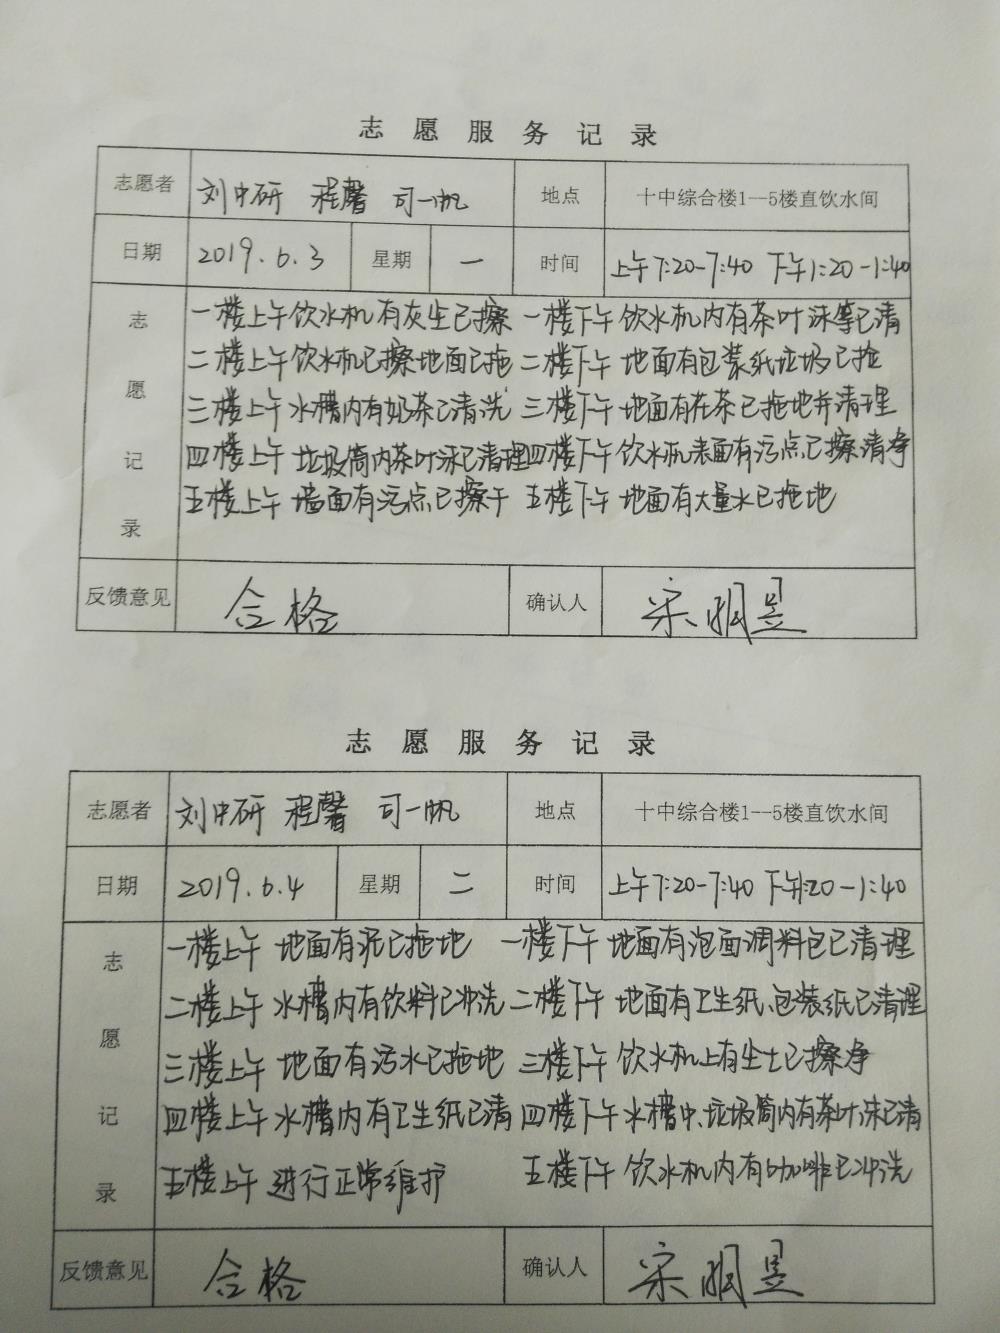 志愿服务记录
志愿者 刘中研 程馨 司一帆 地点 十中综合楼1--5楼直饮水间
日期 2019.6.3 星期 一 时间 上午7:20-7:40 下午1:20-1:40
志愿记录
一楼上午 饮水机有灰尘已擦 一楼下午 饮水机内有茶叶沫等已清
二楼上午 饮水机已擦地面已拖 二楼下午 地面有包装纸垃圾已捡
三楼上午 水槽内有奶茶已清洗 三楼下午 地面有花茶已拖地并清理
四楼上午 垃圾筒内茶叶沫已清理 四楼下午 饮水机表面有污点已擦清净
五楼上午 墙面有污点已擦干 五楼下午 地面有大量水已拖地
反馈意见 合格 确认人 宋明昱
志愿服务记录
志愿者 刘中研 程馨 司一帆 地点 十中综合楼1--5楼直饮水间
日期 2019.6.4 星期 二 时间 上午7:20-7:40 下午1:20-1:40
志愿记录
一楼上午 地面有泥已拖地 一楼下午 地面有泡面调料包已清理
二楼上午 水槽内有饮料已冲洗 二楼下午 地面有卫生纸、包装纸已清理
三楼上午 地面有污水已拖地 三楼下午 饮水机上有尘土已擦净
四楼上午 水槽内有卫生纸已清 四楼下午 水槽中、垃圾筒内有茶叶沫已清
五楼上午 进行正常维护 五楼下午 饮水机内有咖啡已冲洗
反馈意见 合格 确认人 宋明昱